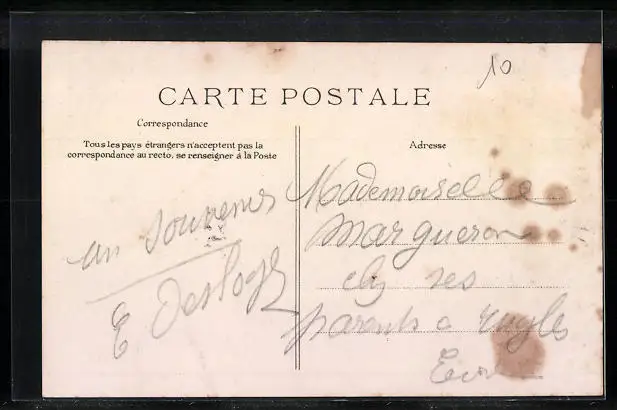 10
CARTE POSTALE
Correspondance
Tous les pays étrangers n'acceptent pas la
correspondance au recto, se renseigner à la Poste
Adresse
un souvenir
E
Mademoiselle
Margueron
chez ses
parents a Rugles
Eure